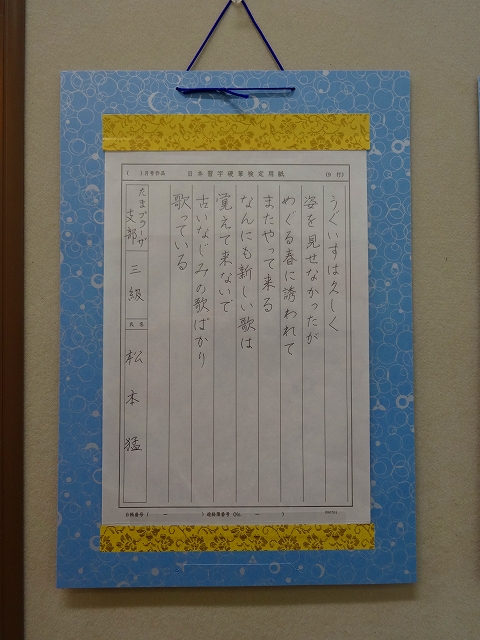 ( )月号作品 日本習字硬筆検定用紙 (B 行)
うぐいすは久しく
姿を見せなかったが
めぐる春に誘われて
またやって来る
なんにも新しい歌は
覚えて来ないで
古いなじみの歌ばかり
歌っている
たまプラーザ支部 三級 氏名 松本猛
台帳番号 ( － ) 成績簿番号 (No. － )